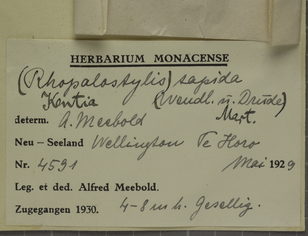 HERBARIUM MONACENSE
(Rhopalostylis) sapida
Kentia (Wendl. u. Drude) Mart.
determ. A. Meebold
Neu – Seeland Wellington Te Horo
Nr. 4591 Mai 1929
Leg. et ded. Alfred Meebold.
Zugegangen 1930. 4-8 m h. Gesellig.